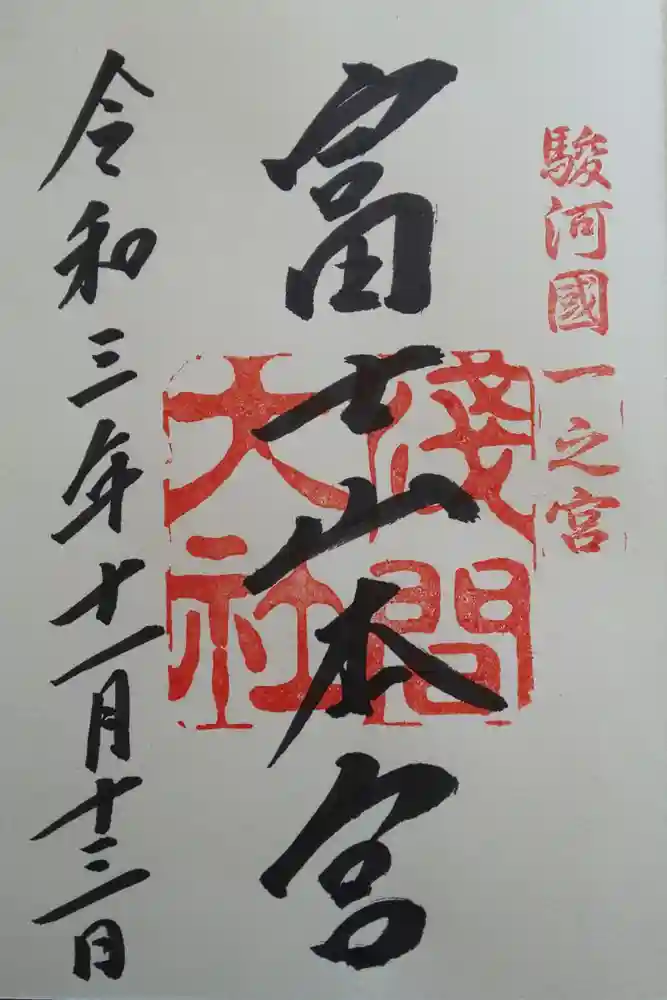 駿河國一之宮
富士山本宮
淺間
大社
令和三年十一月十三日